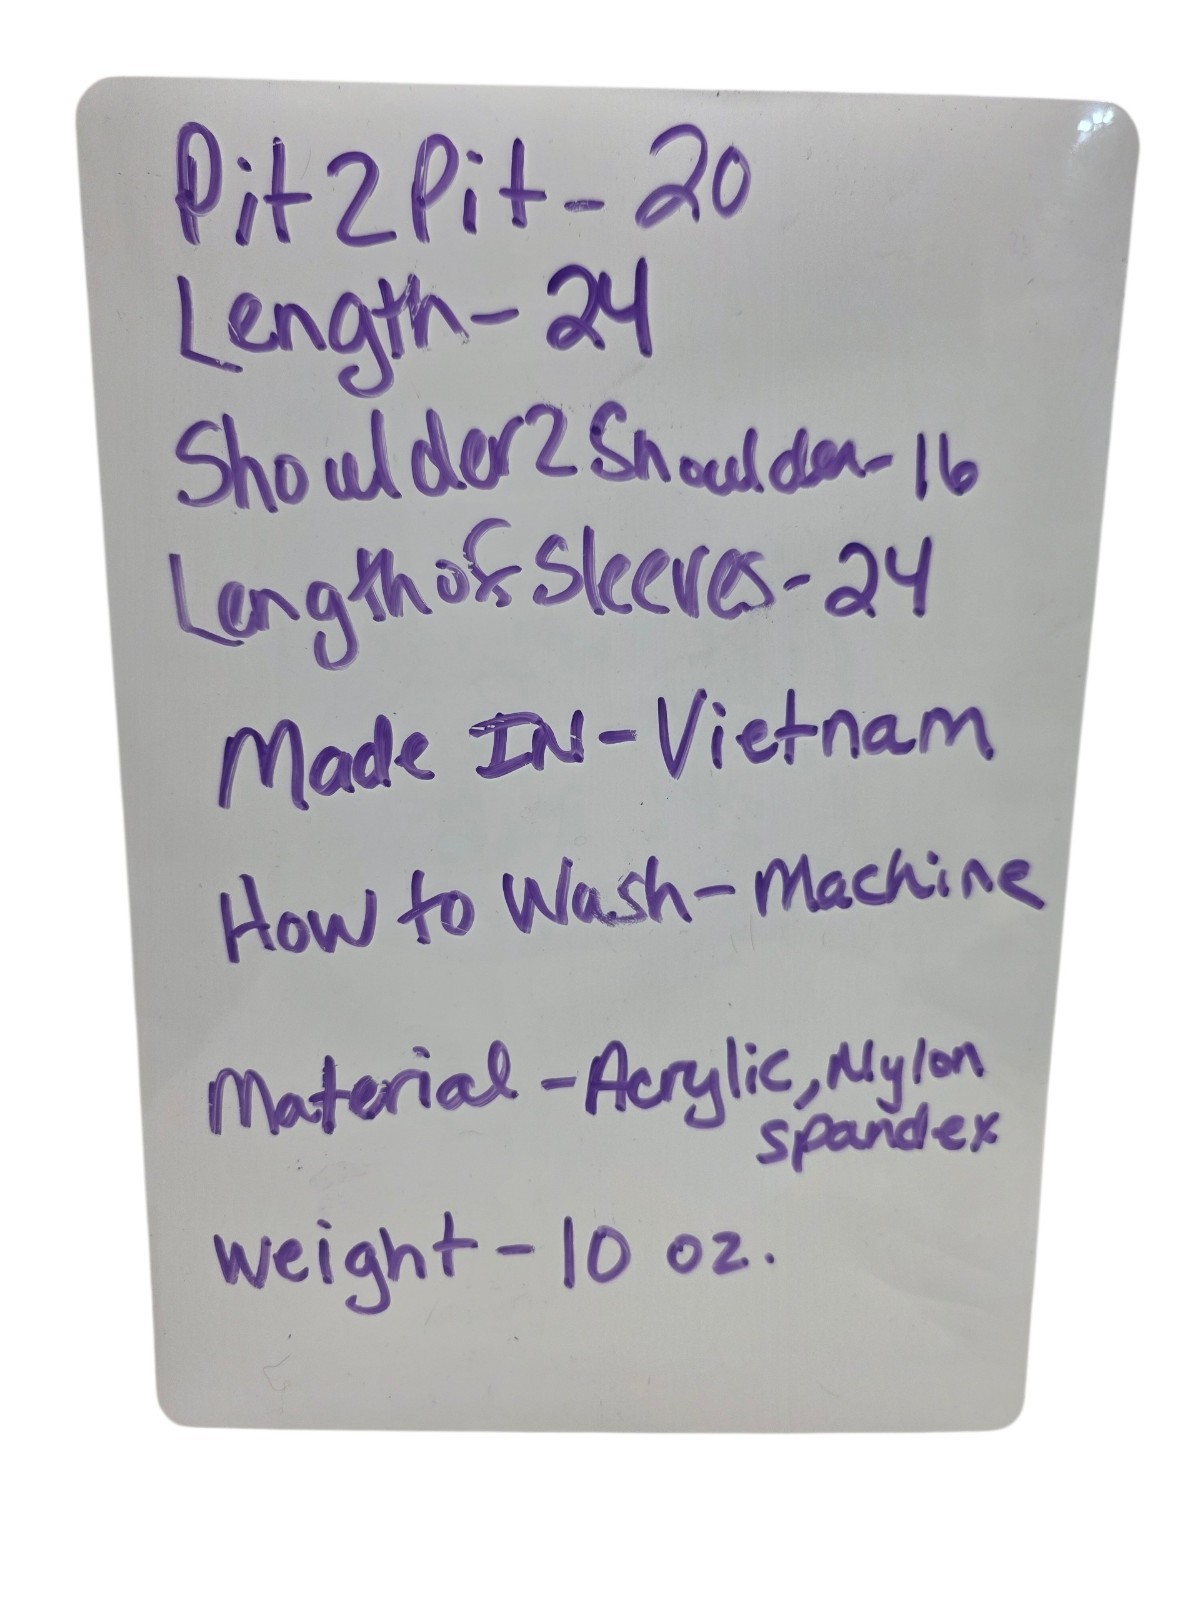 Pit 2 Pit - 20
Length - 24
Shoulder 2 Shoulder - 16
Length of Sleeves - 24
Made IN - Vietnam
How to Wash - Machine
Material - Acrylic, Nylon
spandex
weight - 10 oz.